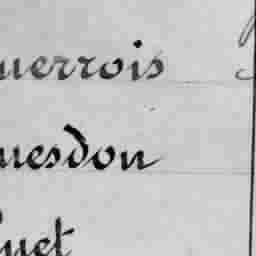 uerrois
uesdon
uet